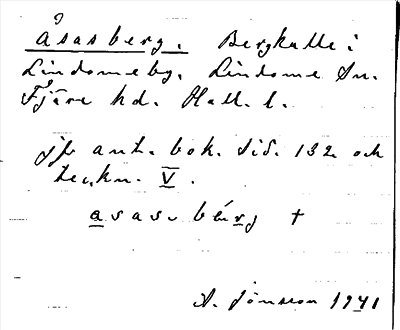 Åsasberg. Bergkulle i
Lindomeby, Lindome Sn.
Fjäre hd. Hall. l.
jfr ant. bok. sid. 132 och
teckn. V.
asasbérg +
A. Jönsson 1941